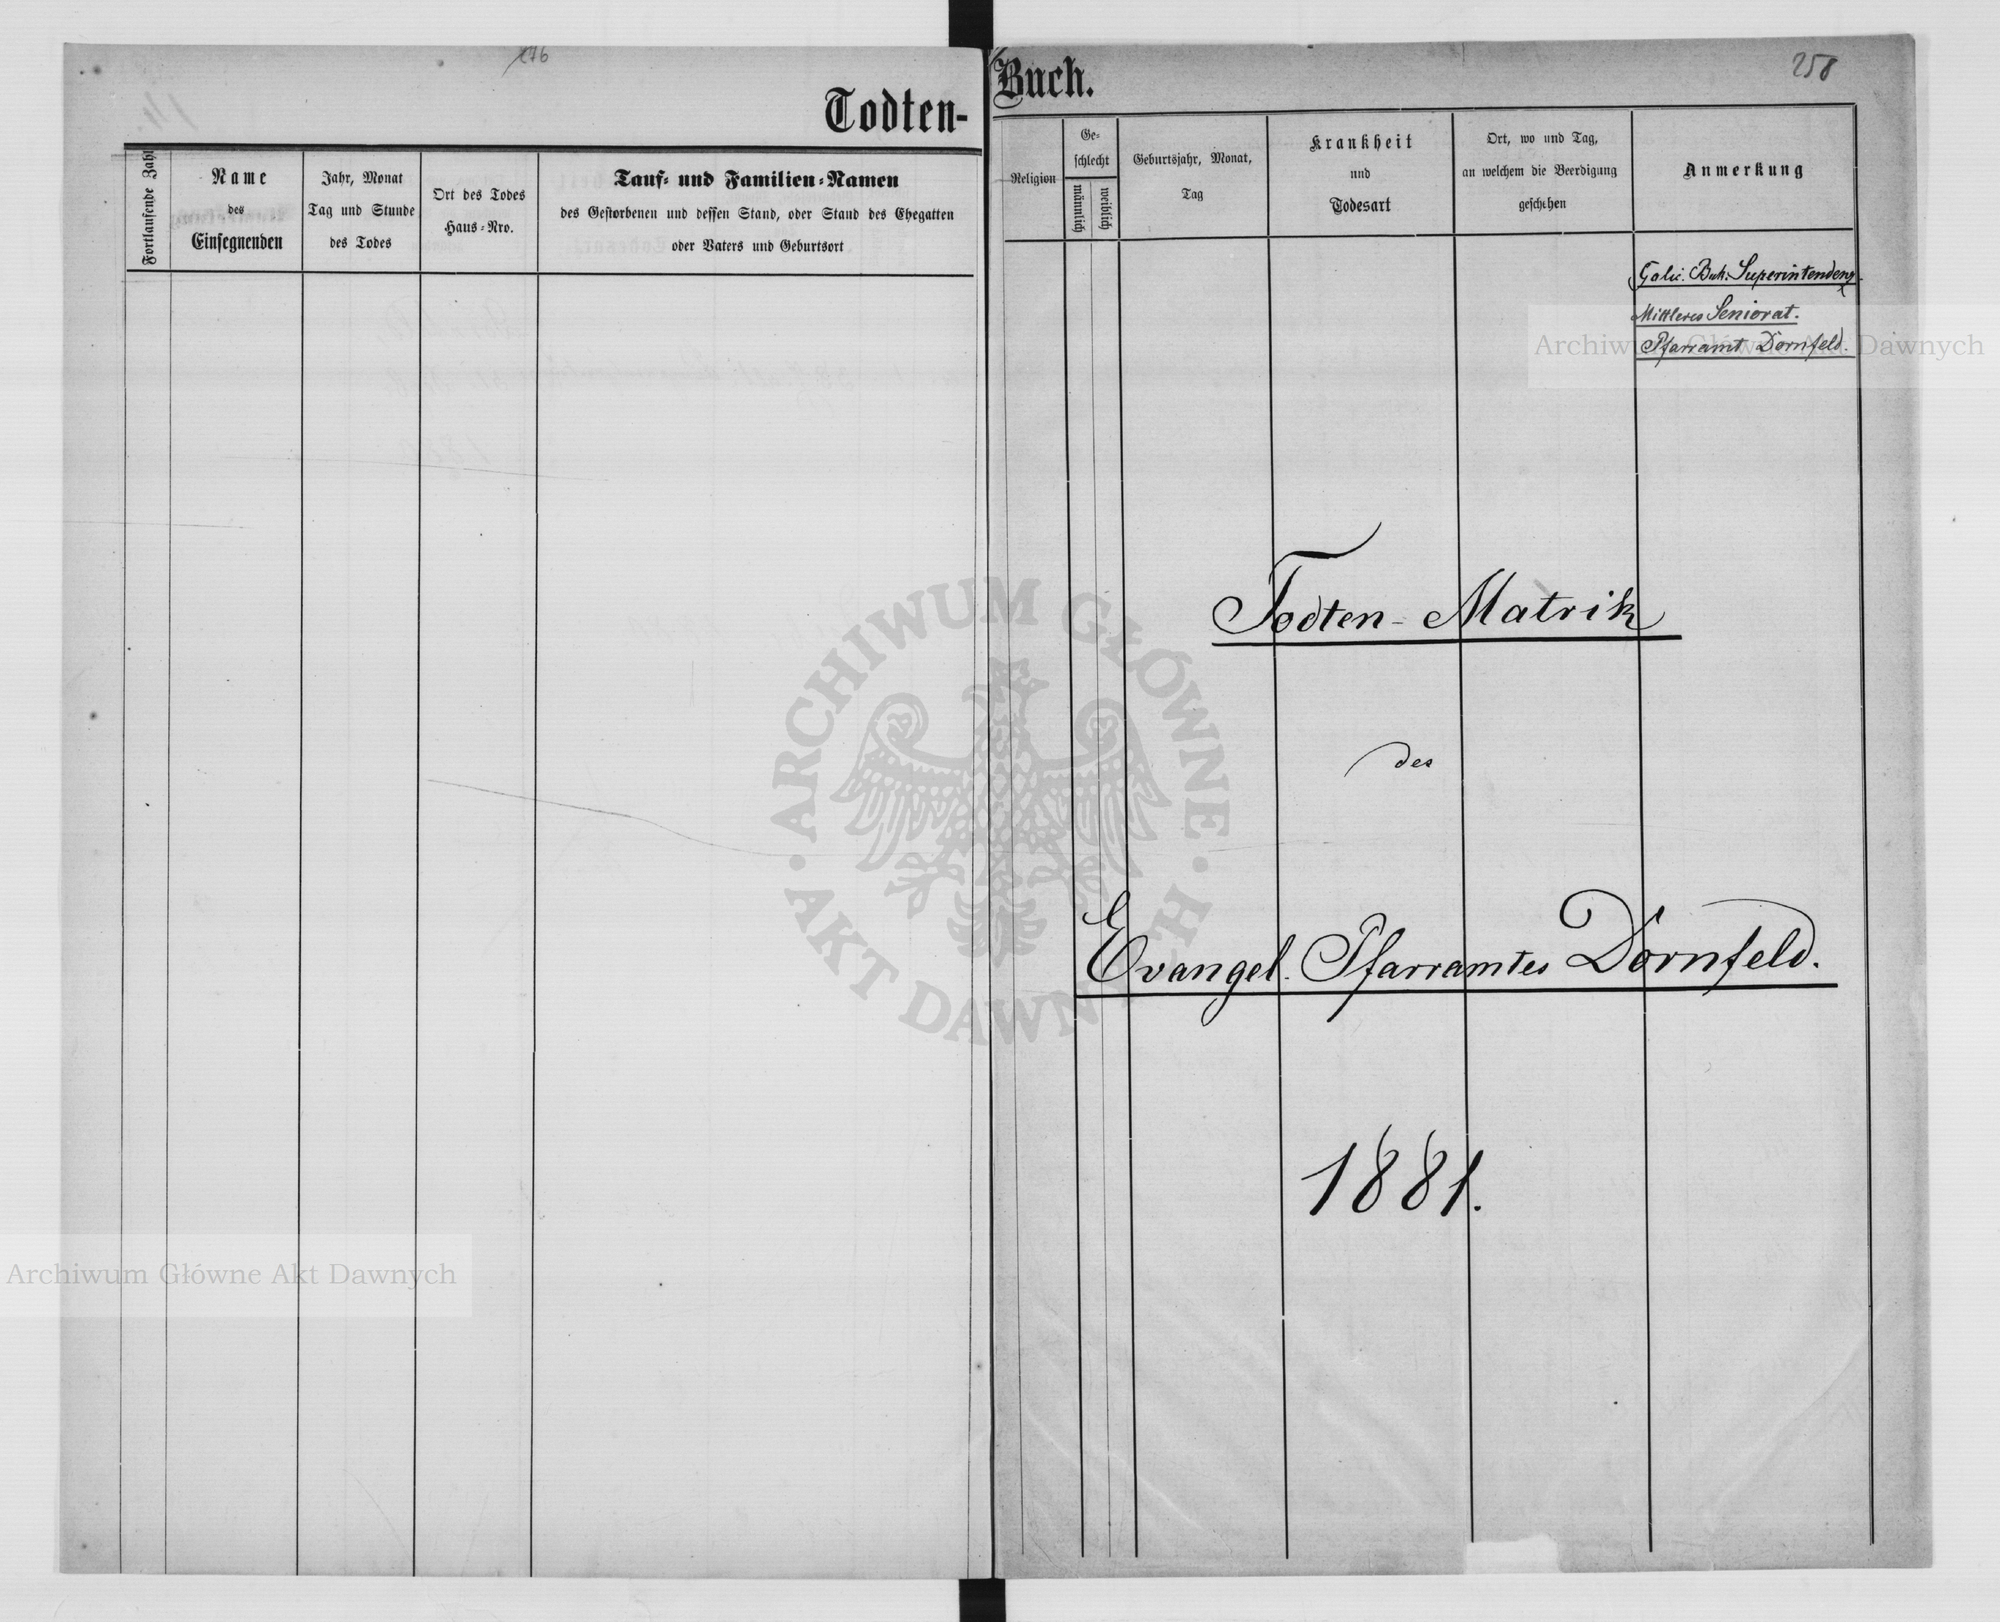 176
Todten-
Fortlaufende Zahl
Name
des
Einsegnenden
Jahr, Monat
Tag und Stunde
des Todes
Ort des Todes
Haus-Nro.
Tauf- und Familien-Namen
des Gestorbenen und dessen Stand, oder Stand des Ehegatten
oder Vaters und Geburtsort
Buch.
258
Religion
Ge-
schlecht
männlich
weiblich
Geburtsjahr, Monat,
Tag
Krankheit
und
Todesart
Ort, wo und Tag,
an welchem die Beerdigung
geschehen
Anmerkung
Galic. Buk. Superintendenz
Mittleres Seniorat.
Pfarramt Dornfeld.
Todten-Matrik
des
Evangel. Pfarramtes Dornfeld.
1881.
Archiwum Główne Akt Dawnych
ARCHIWUM GŁÓWNE AKT DAWNYCH
Archiwum Główne Akt Dawnych